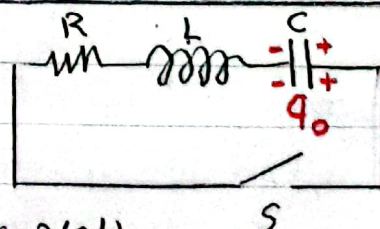 R L C
- +
- +
q₀
S